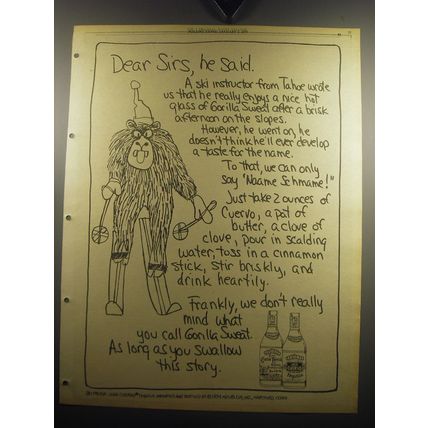 Dear Sirs, he said.
A ski instructor from Tahoe wrote
us that he really enjoys a nice hot
glass of Gorilla Sweat after a brisk
afternoon on the slopes.
However, he went on, he
doesn't think he'll ever develop
a taste for the name.
To that, we can only
say "Naame Schmame!"
Just take 2 ounces of
Cuervo, a pat of
butter, a clove of
clove, pour in scalding
water, toss in a cinnamon
stick, stir briskly, and
drink heartily.
Frankly, we don't really
mind what
you call Gorilla Sweat.
As long as you swallow
this story.